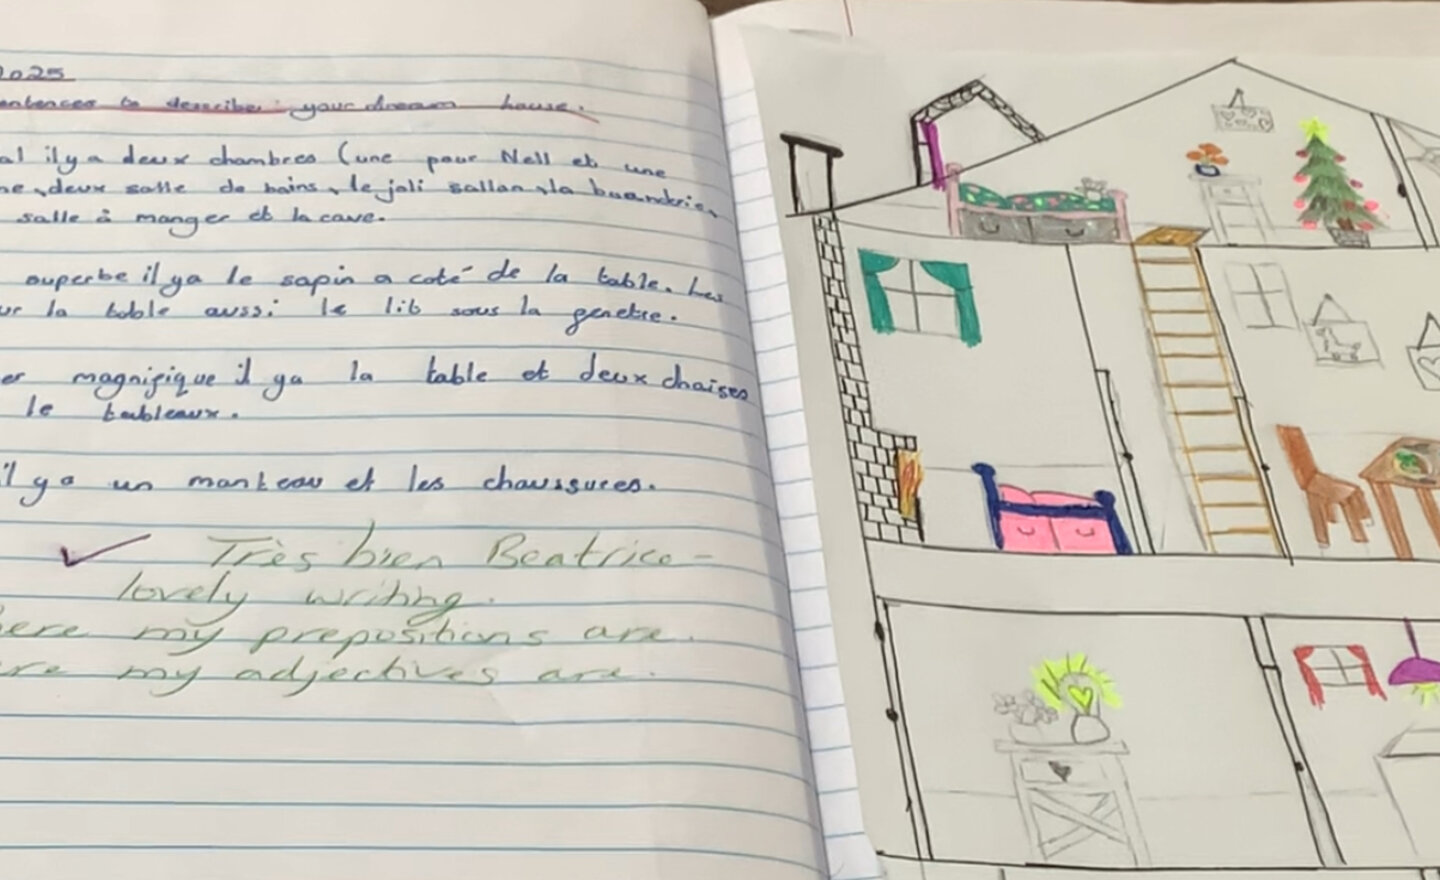 2025
entences to describe your dream house.
al il y a deux chambres (une pour Nell et une
ne, deux salle de bains, le joli sallon, la buandrie,
salle à manger et la cave.
superbe il ya le sapin a coté de la table. Les
ur la table aussi le lit sous la genetre.
er magnifique il ya la table et deux chaises
le tableaux.
il y a un manteau et les chaussures.
Très bien Beatrice -
lovely writing.
here my prepositions are.
re my adjectives are.